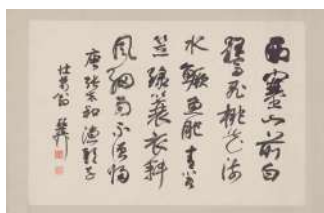 西塞山前白
鷺飛桃花流
水鱖魚肥青箬
笠綠蓑衣斜
風細雨不須歸
唐張志和漁歌子